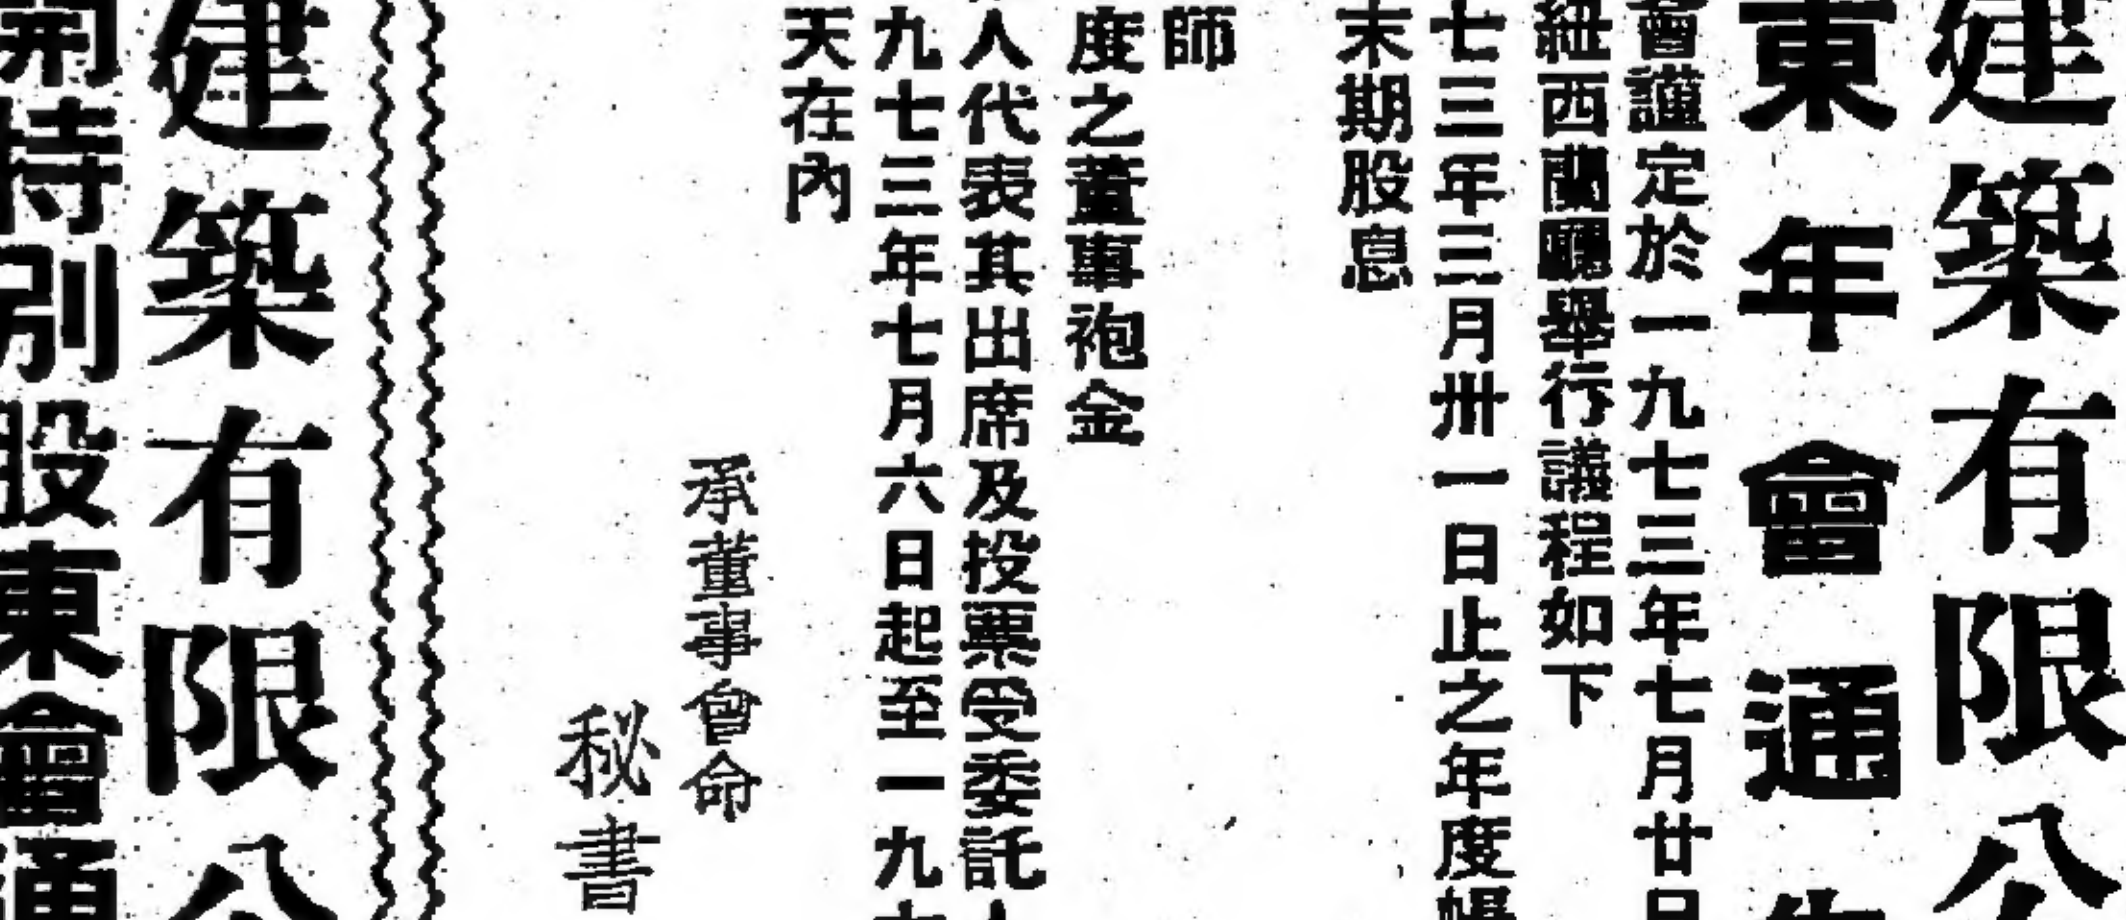 建築有限公
東年會通告
會謹定於一九七三年七月廿日
紐西蘭廳舉行議程如下
七三年三月卅一日止之年度帳
末期股息
師
度之董事袍金
人代表其出席及投票受委託人
九七三年七月六日起至一九七
天在內
承董事會命
秘書
建築有限公
開特別股東會通